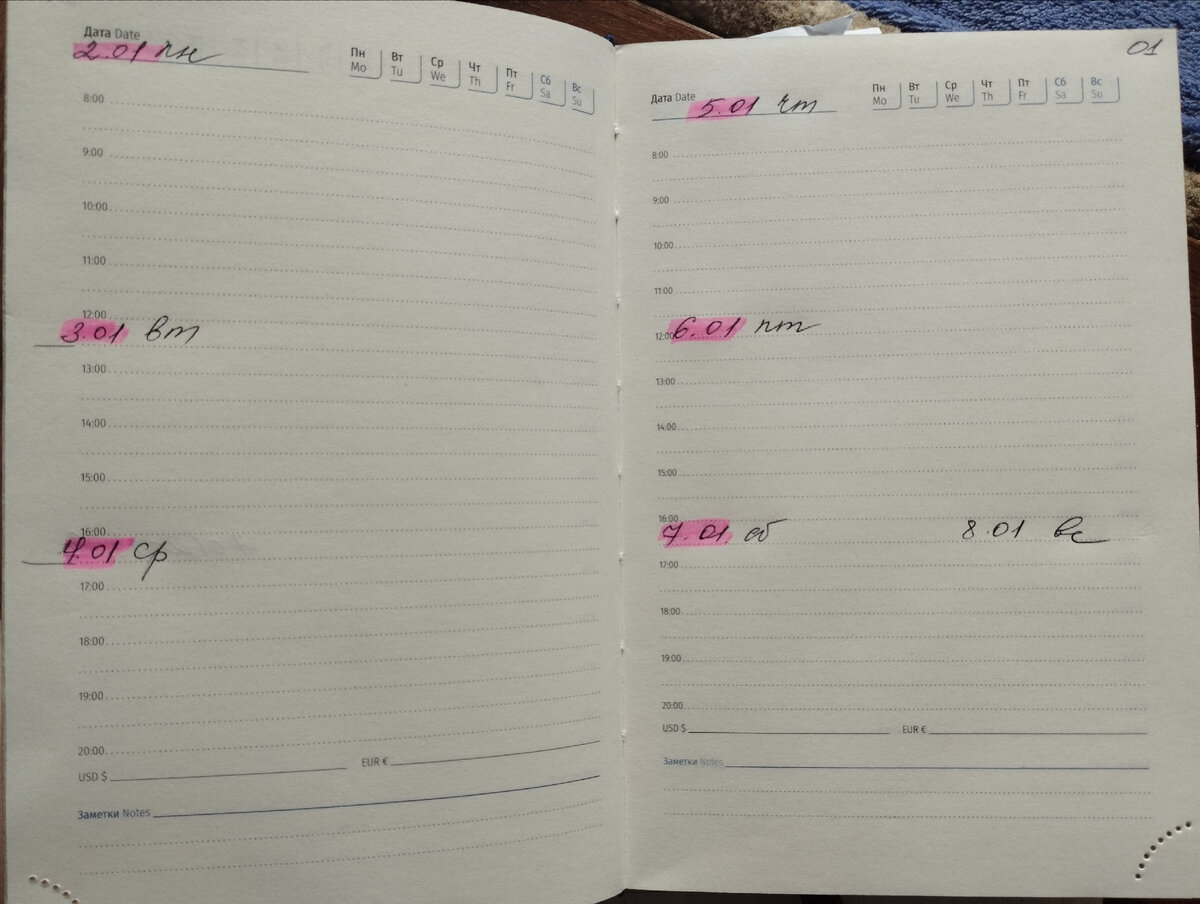 Дата Date 2.01 пн
Пн Вт Ср Чт Пт Сб Вс
Mo Tu We Th Fr Sa Su
8:00
9:00
10:00
11:00
12:00
3.01 вт
13:00
14:00
15:00
16:00
4.01 ср
17:00
18:00
19:00
20:00
USD $ EUR €
Заметки Notes
01
Дата Date 5.01 чт
Пн Вт Ср Чт Пт Сб Вс
Mo Tu We Th Fr Sa Su
8:00
9:00
10:00
11:00
12:00 6.01 пт
13:00
14:00
15:00
16:00
7.01 сб 8.01 вс
17:00
18:00
19:00
20:00
USD $ EUR €
Заметки Notes